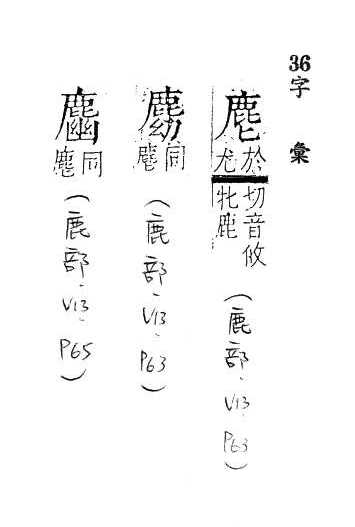 36字彙
麀
於尤
切音攸
牝鹿
(鹿部.V13.P63)
同麀
(鹿部.V13.P63)
同麀
(鹿部.V13.P65)